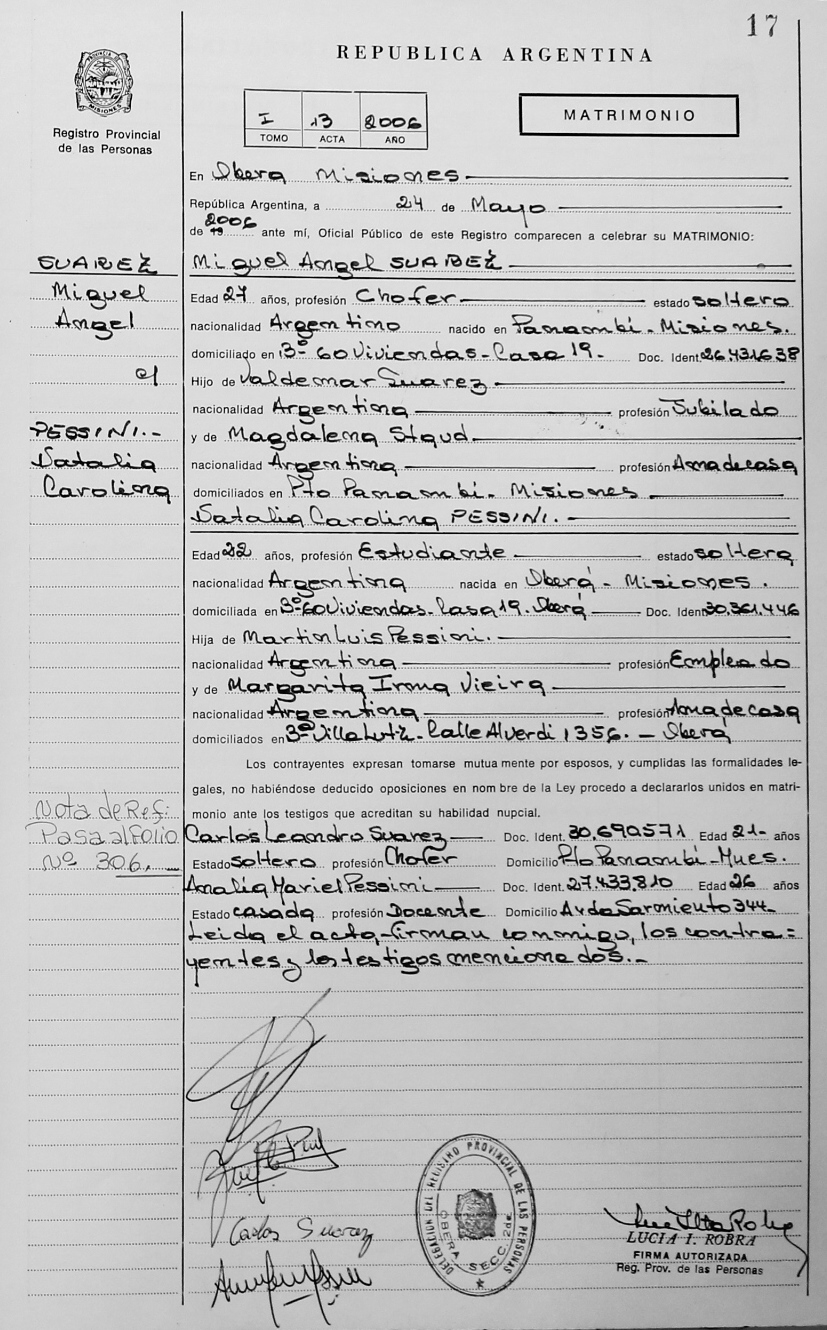 17
REPUBLICA ARGENTINA
PROVINCIA DE MISIONES
Registro Provincial
de las Personas
I 13 2006
TOMO ACTA AÑO
MATRIMONIO
En Oberá Misiones
República Argentina, a 24 de Mayo
de 19 2006 ante mí, Oficial Público de este Registro comparecen a celebrar su MATRIMONIO:
SUAREZ
Miguel
Angel
c/
PESSINI.-
Natalia
Carolina
Miguel Angel SUAREZ
Edad 27 años, profesión Chofer estado soltero
nacionalidad Argentino nacido en Panambí - Misiones.
domiciliado en Bº 60 Viviendas - Casa 19. Doc. Ident. 26.431.638
Hijo de Valdemar Suarez
nacionalidad Argentina profesión Jubilado
y de Magdalena Staud
nacionalidad Argentina profesión Ama de casa
domiciliados en Pto Panambí - Misiones
Natalia Carolina PESSINI. -
Edad 22 años, profesión Estudiante estado soltera
nacionalidad Argentina nacida en Oberá - Misiones.
domiciliada en Bº 60 Viviendas - Casa 19. Oberá Doc. Ident. 30.361.446
Hija de Martin Luis Pessini.
nacionalidad Argentina profesión Empleado
y de Margarita Irma Vieira
nacionalidad Argentina profesión Ama de casa
domiciliados en Bº Villa Lutz - Calle Alverdi 1356. - Oberá
Los contrayentes expresan tomarse mutuamente por esposos, y cumplidas las formalidades le-
gales, no habiéndose deducido oposiciones en nombre de la Ley procedo a declararlos unidos en matri-
monio ante los testigos que acreditan su habilidad nupcial.
Nota de Ref:
Pasa al Folio
Nº 306.
Carlos Leandro Suarez Doc. Ident. 30.690.571 Edad 21 - años
Estado soltero profesión Chofer Domicilio Pto Panambí - Mnes.
Analia Mariel Pessini Doc. Ident. 27.433.810 Edad 26 años
Estado casada profesión Docente Domicilio Avda Sarmiento 344
Leida el acta, firman conmigo, los contra=
yentes y los testigos mencionados.-
Carlos Suarez
DELEGACION DEL REGISTRO PROVINCIAL DE LAS PERSONAS
OBERA SECC. 2da.
LUCIA I. ROBRA
FIRMA AUTORIZADA
Reg. Prov. de las Personas